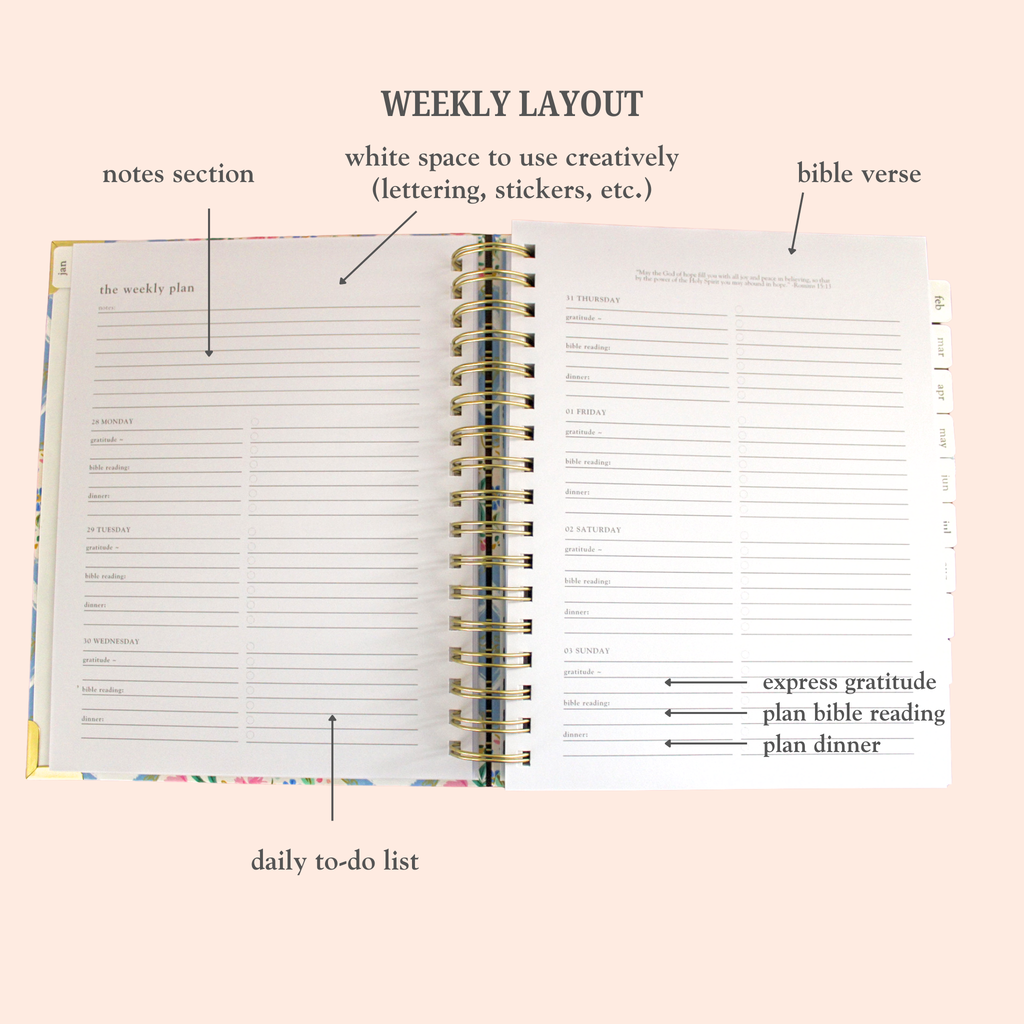 WEEKLY LAYOUT
notes section
white space to use creatively
(lettering, stickers, etc.)
bible verse
jan
the weekly plan
notes:
28 MONDAY
gratitude ~
bible reading:
dinner:
29 TUESDAY
gratitude ~
bible reading:
dinner:
30 WEDNESDAY
gratitude ~
bible reading:
dinner:
"May the God of hope fill you with all joy and peace in believing, so that
by the power of the Holy Spirit you may abound in hope." Romans 15:13
31 THURSDAY
gratitude ~
bible reading:
dinner:
01 FRIDAY
gratitude ~
bible reading:
dinner:
02 SATURDAY
gratitude ~
bible reading:
dinner:
03 SUNDAY
gratitude ~
bible reading:
dinner:
express gratitude
plan bible reading
plan dinner
feb
mar
apr
may
jun
jul
daily to-do list